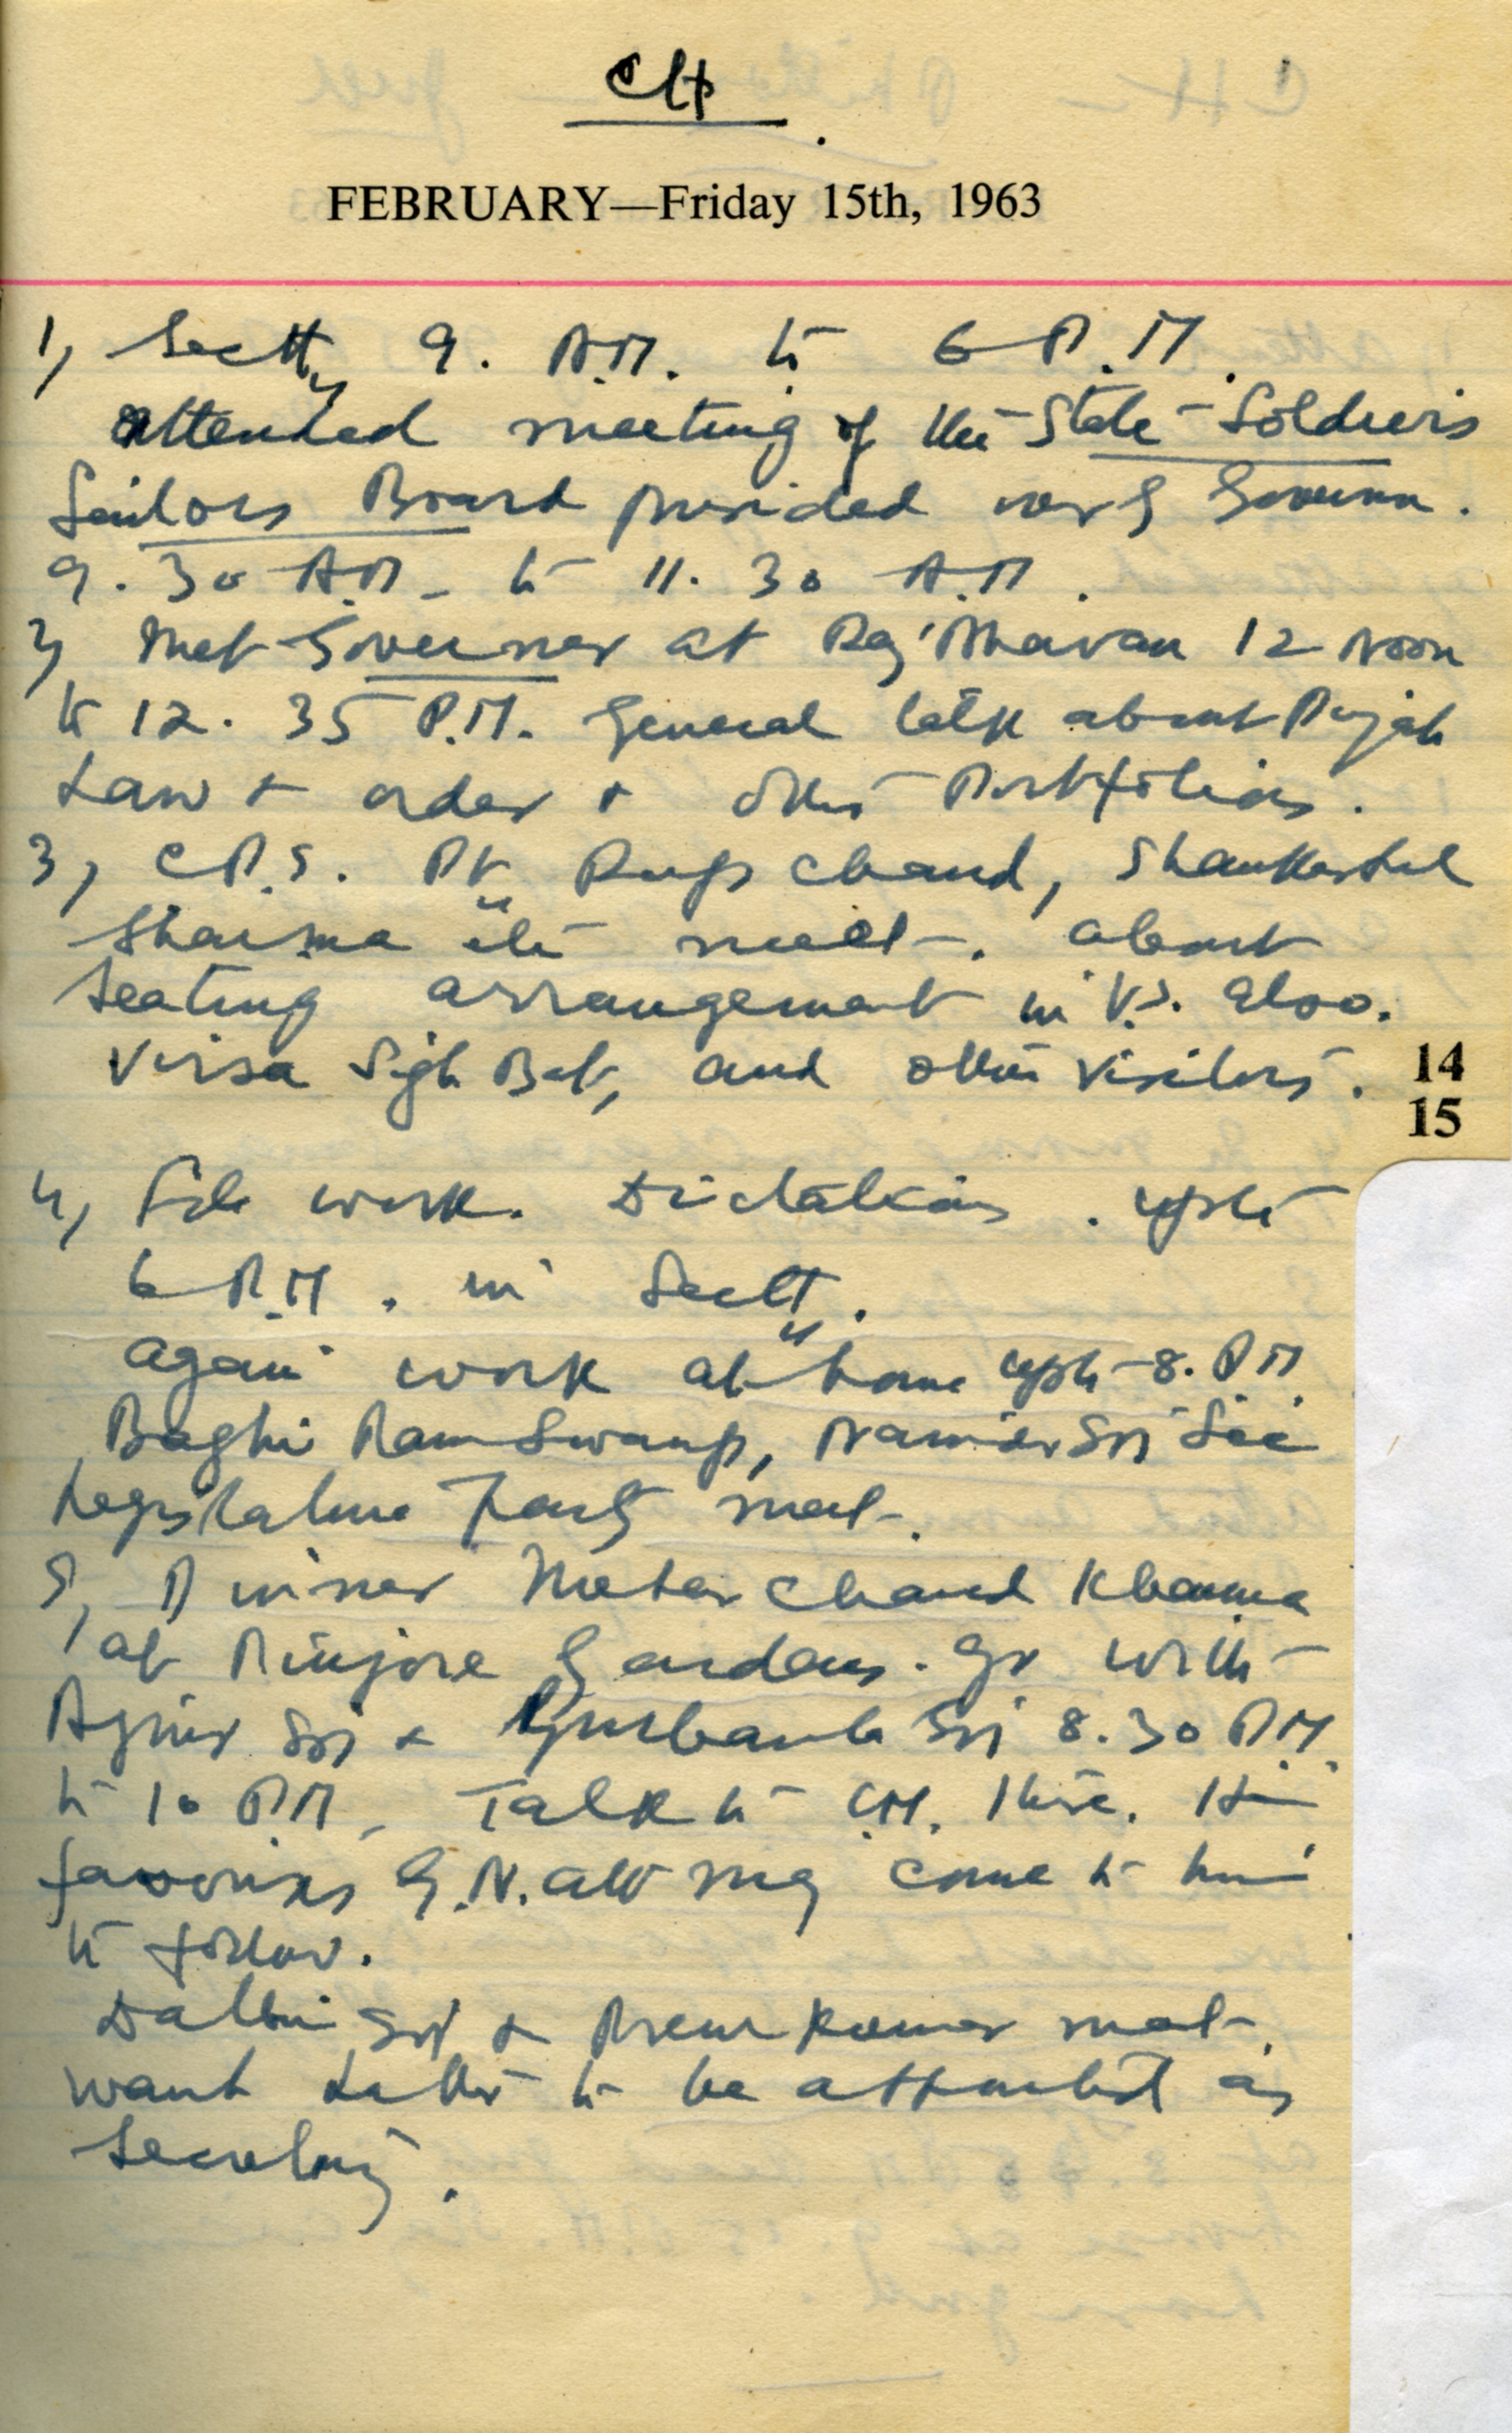 CH
FEBRUARY—Friday 15th, 1963
1, Sectt, 9. A.M. to 6 P.M.
attended meeting of the State Soldiers
Sailors Board presided over by Governor.
9.30 A.M. to 11.30 A.M.
2, Met Governer at Raj Bhavan 12 Noon
to 12.35 P.M. General talk about Punjab
Law & order & other Portfolios.
3, C.P.S. Pt. Rup Chand, Shankerlal
Sharma etc meet. about
seating arrangement in V.S. also.
Virsa Sigh and other visitors.
14
15
4, File work. Dictations. upto
6 P.M. in Sectt.
again work at home upto 8. P.M.
Baghi Ram Swarup, Sec
Legislature Party meet.
5, Dinner Meher Chand Khanna
at Pinjore Gardens. go with
Ajmer Sgj & Gurbanta Sgj 8.30 P.M.
to 10 P.M. Talk to C.M. there. His
favourites G.N. come to him
to follow.
Dalbir Sgj & Prem Kumar meet.
want latter to be as
Secretary.